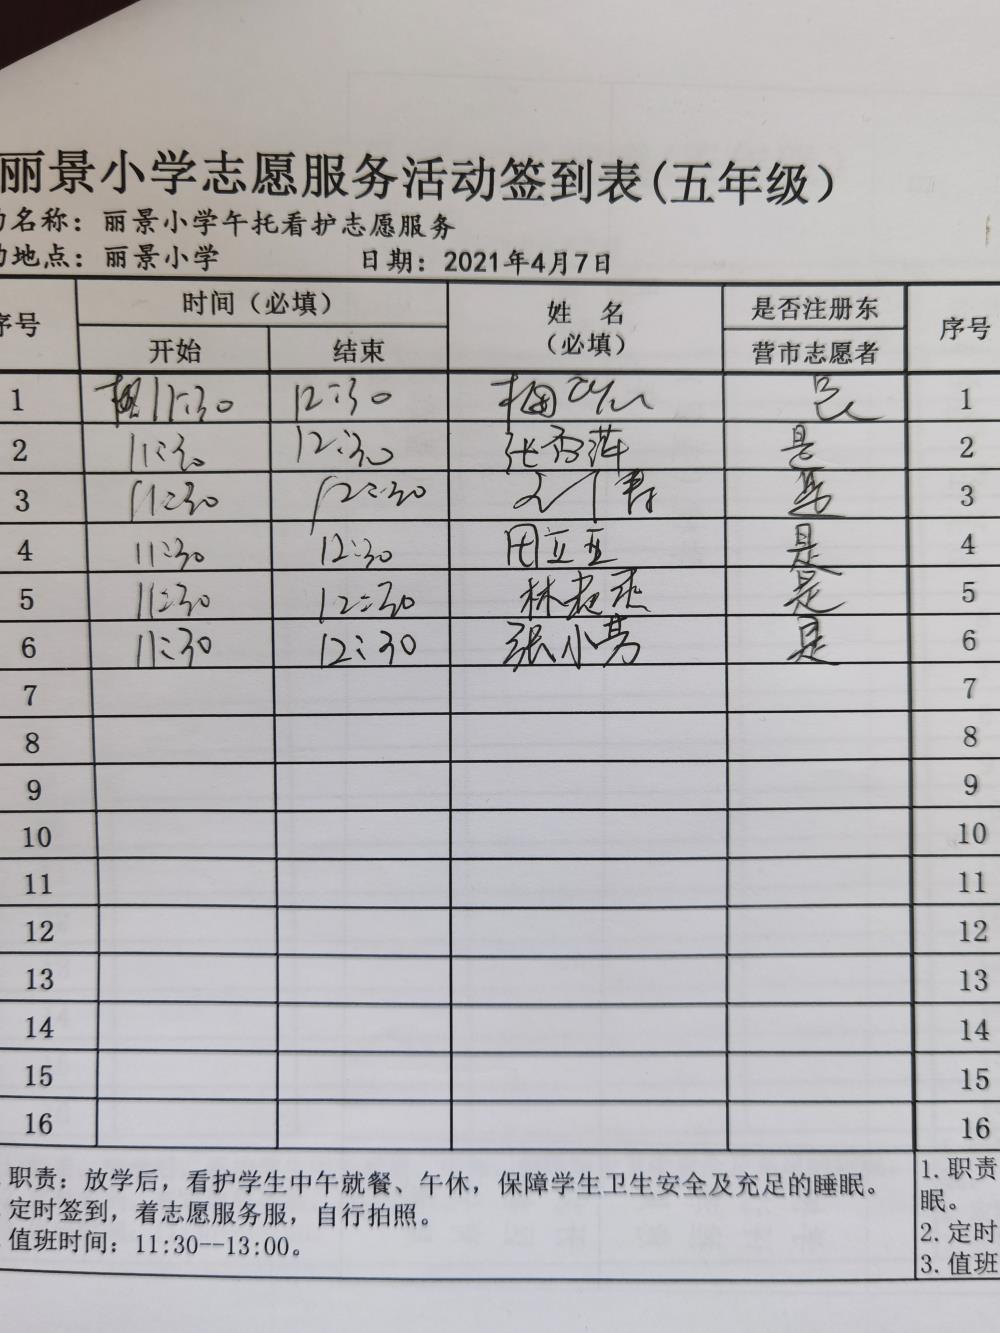 丽景小学志愿服务活动签到表(五年级)
名称：丽景小学午托看护志愿服务
地点：丽景小学 日期：2021年4月7日
序号 时间（必填） 姓 名 （必填） 是否注册东 序号
开始 结束 营市志愿者
1 11:30 12:30 是 1
2 11:30 12:30 张香萍 是 2
3 11:30 12:30 是 3
4 11:30 12:30 田立亚 是 4
5 11:30 12:30 林 是 5
6 11:30 12:30 张小芳 是 6
7 7
8 8
9 9
10 10
11 11
12 12
13 13
14 14
15 15
16 16
职责：放学后，看护学生中午就餐、午休，保障学生卫生安全及充足的睡眠。 1.职责
定时签到，着志愿服务服，自行拍照。 眠。
值班时间：11:30--13:00。 2.定时
3.值班